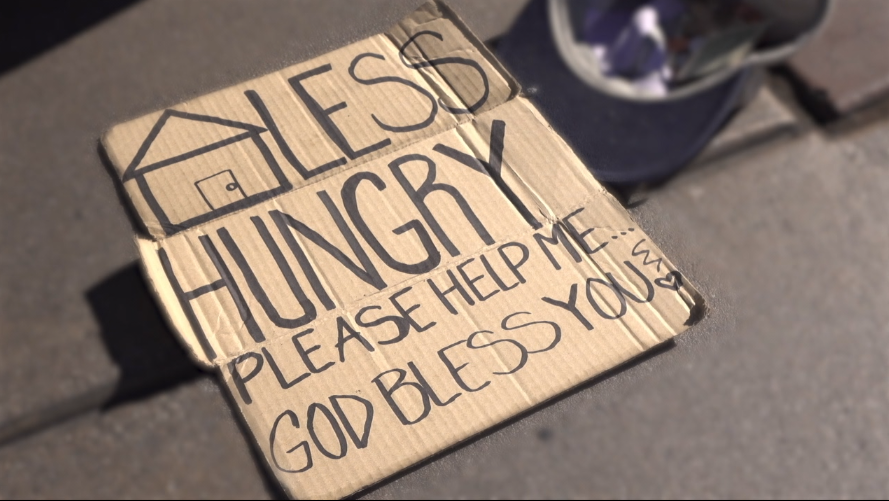 LESS
HUNGRY
PLEASE HELP ME...
GOD BLESS YOU